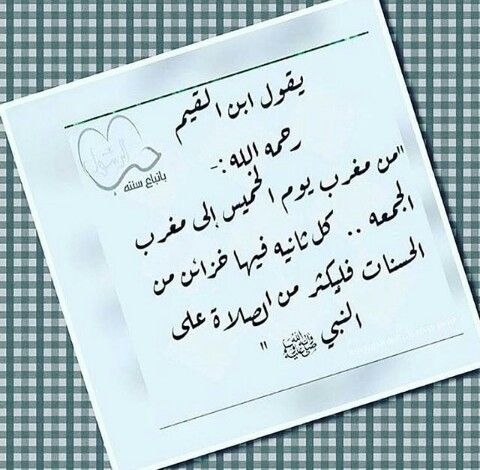 يقول ابن القيم
رحمه الله :-
"من مغرب يوم الخميس إلى مغرب
الجمعه .. كل ثانيه فيها خزائن من
الحسنات فليكثر من الصلاة على
النبي ﷺ "
باتباع سنته